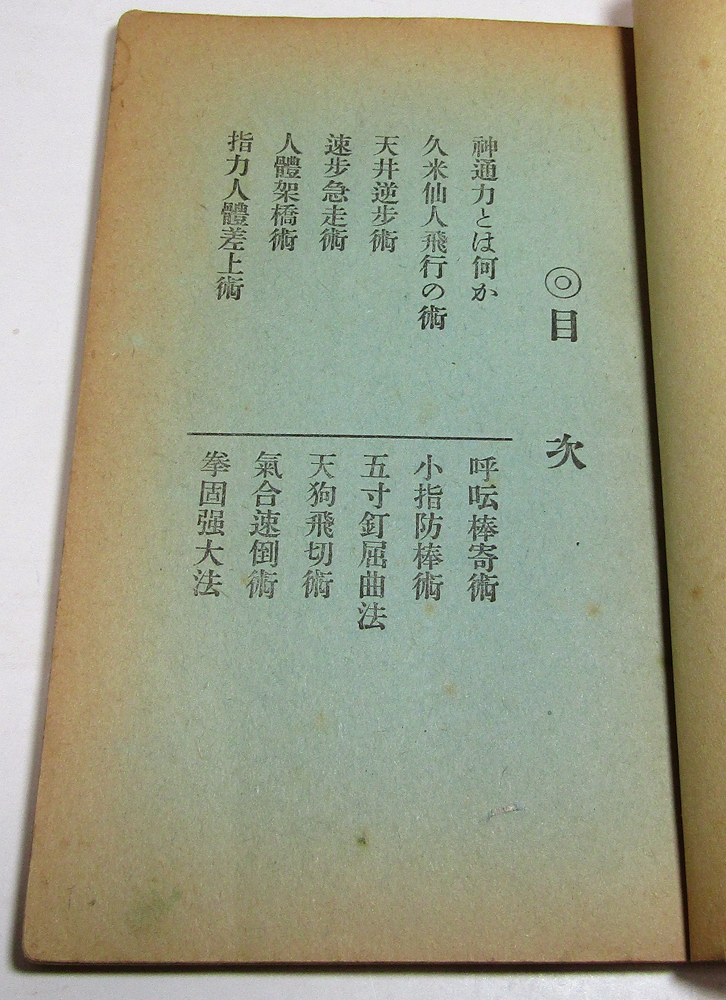 ◎目次
神通力とは何か
久米仙人飛行の術
天井逆歩術
速歩急走術
人體架橋術
指力人體差上術
呼吆棒寄術
小指防棒術
五寸釘屈曲法
天狗飛切術
氣合速倒術
拳固强大法